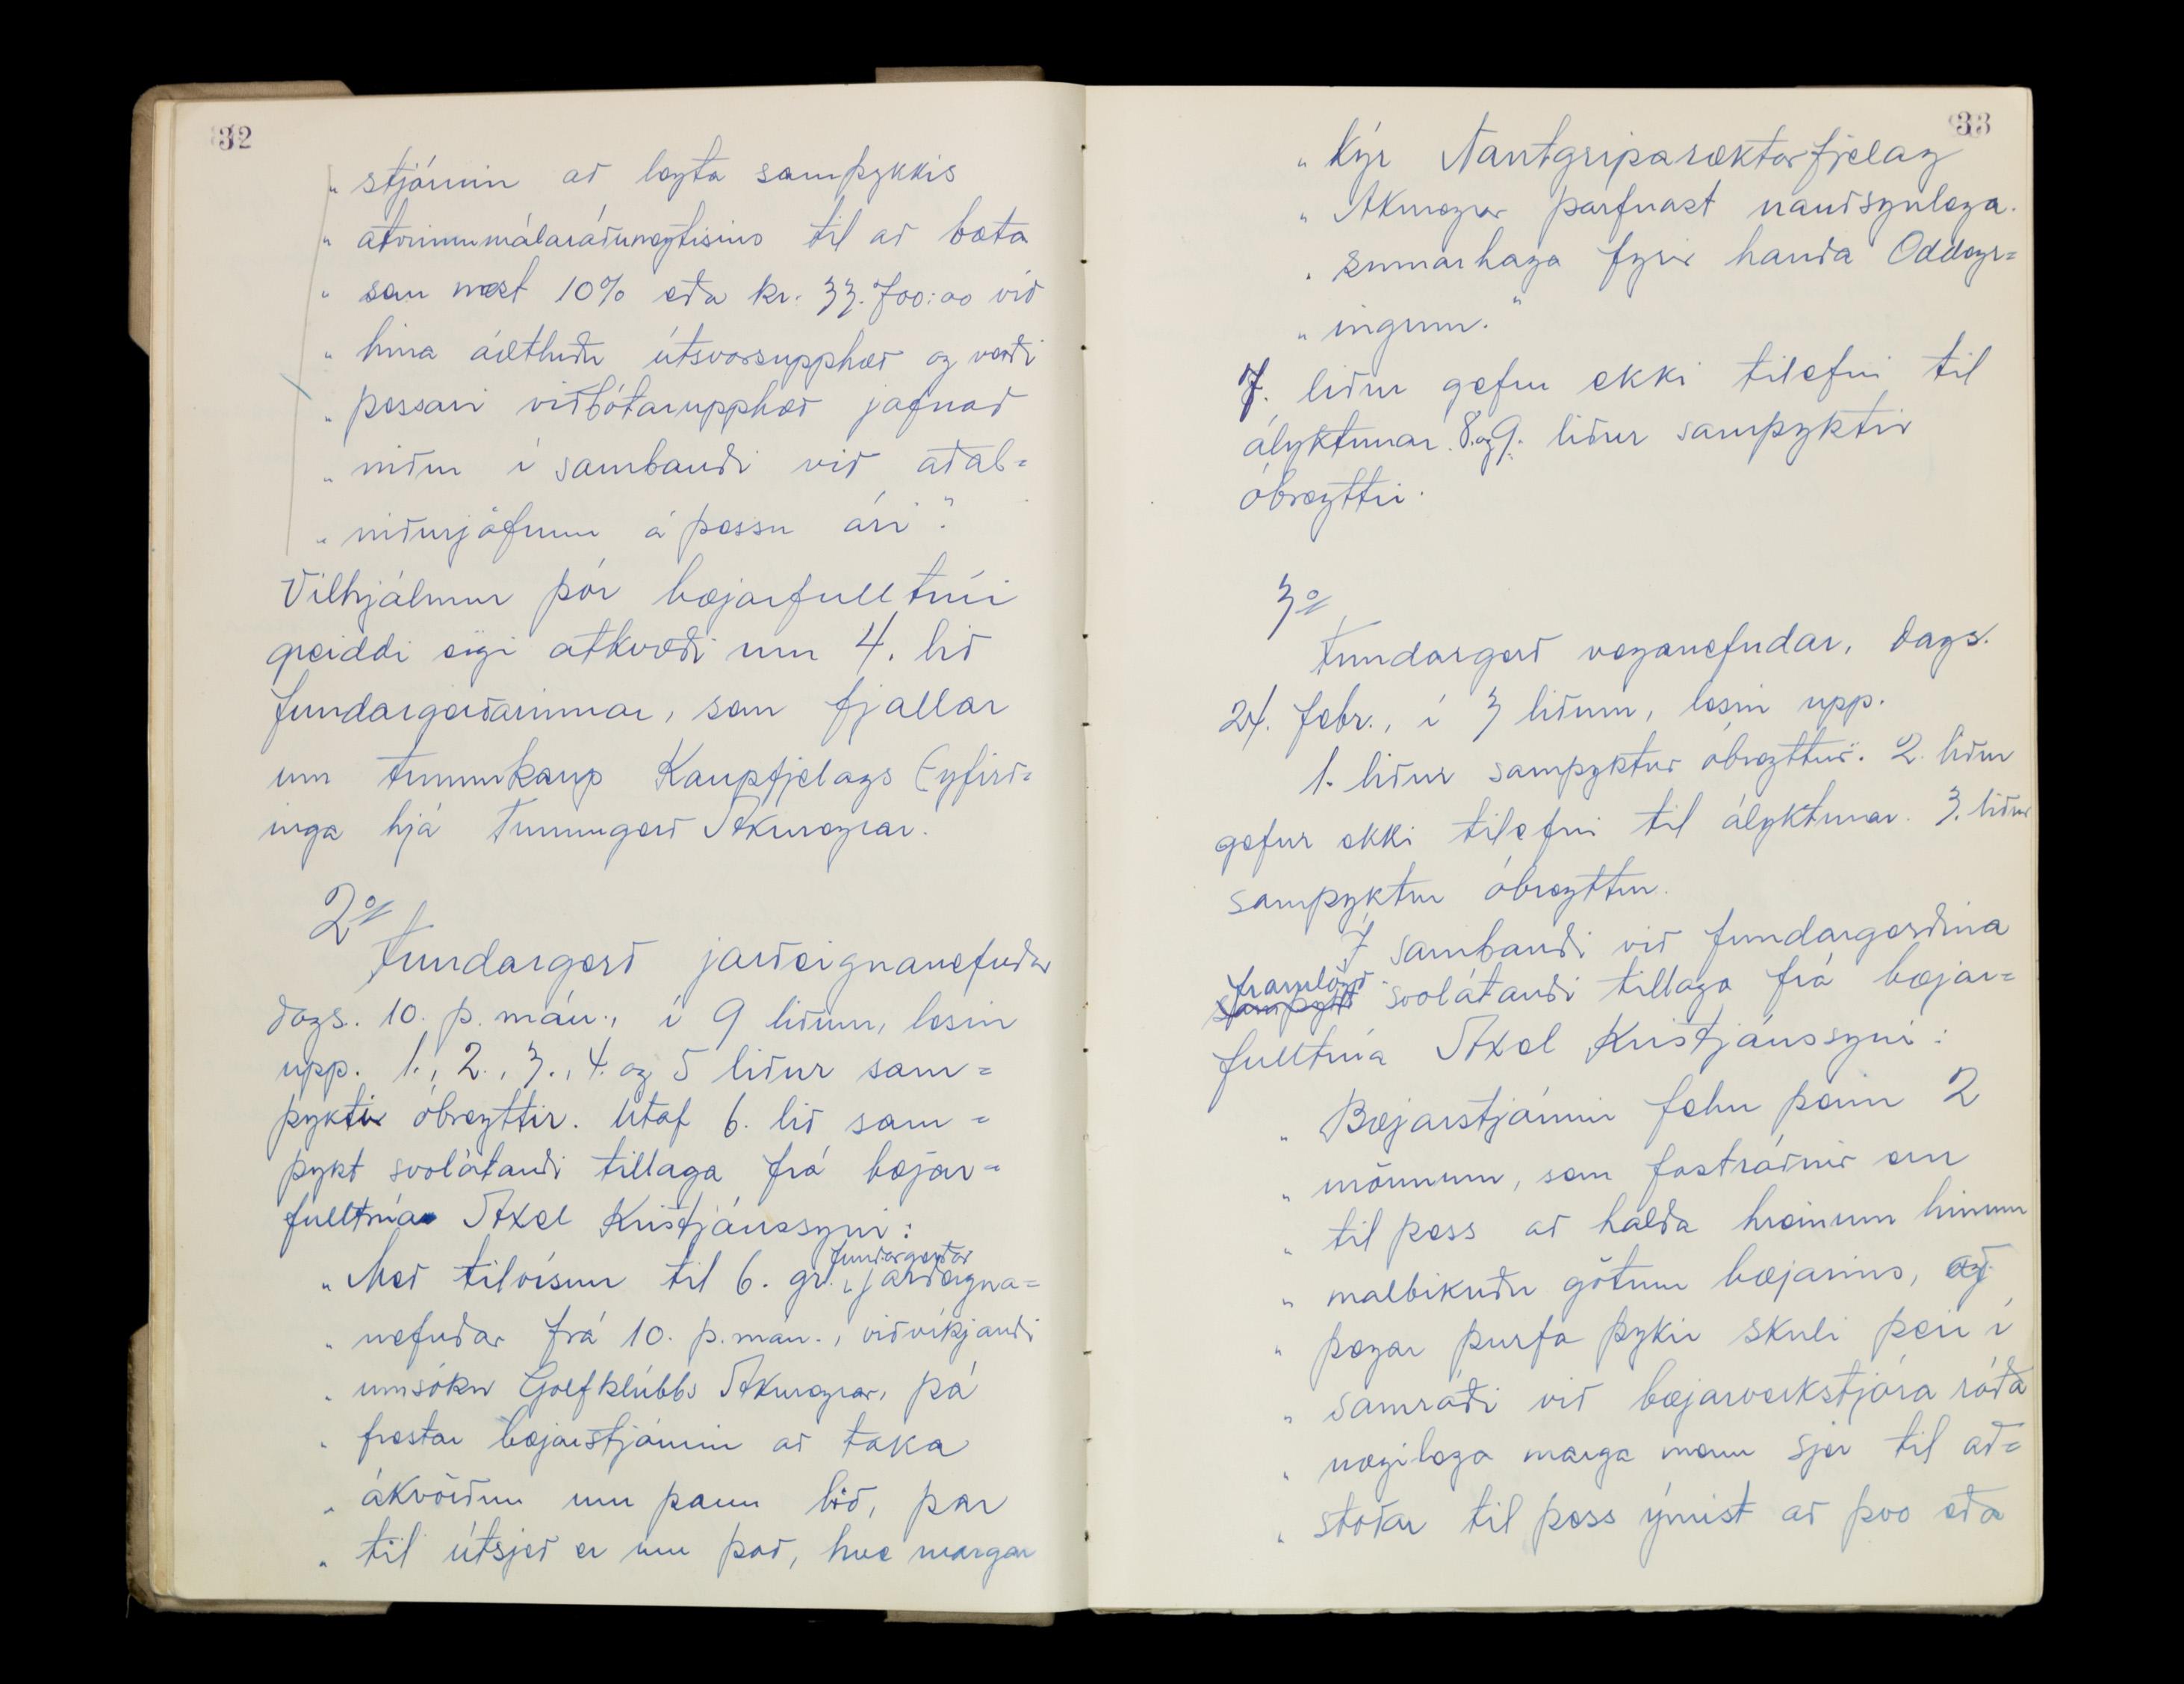 32
„ stjórnin að leyta samþykkis
„ atvinnumálaráðuneytisins til að bæta
„ sem næst 10% eða kr. 33.700:00 við
„ hina áætluðu útsvarsupphæð og verði
„ þessari viðbótarupphæð jafnað
„ niður í sambandi við aðal=
„ niðurjöfnun á þessu ári“.
Vilhjálmur Þór bæjarfulltrúi
greiddi eigi atkvæði um 4. lið
fundargerðarinnar, sem fjallar
um tunnukaup Kaupfjelags Eyfirð=
inga hjá Tunnugerð Akureyrar.
2º/
Fundargerð jarðeignanefndar
dags. 10. þ. mán., í 9 liðum, lesin
upp. 1., 2., 3., 4. og 5 liður sam=
þyktir óbreyttir. Útaf 6. lið sam=
þykt svolátandi tillaga frá bæjar=
fulltrúa Axel Kristjánssyni:
„ Með tilvísun til 6. gr. fundargerðar jarðeigna=
„ nefndar frá 10. þ. mán., viðvíkjandi
„ umsókn Golfklúbbs Akureyrar, þá
„ frestar bæjarstjórnin að taka
„ ákvörðun um þann lið, þar
„ til útsjeð er um það, hve margar
33
„ kýr Nautgriparæktarfjelag
„ Akureyrar þarfnast nauðsynlega
„ sumarhaga fyrir handa Oddeyr=
„ ingum.“
7. liður gefur ekki tilefni til
ályktunar. 8. og 9. liður samþyktir
óbreyttir.
3º/
Fundargerð veganefndar, dags.
24. febr., í 3 liðum, lesin upp.
1. liður samþyktur óbreyttur. 2. liður
gefur ekki tilefni til ályktunar. 3. liður
samþyktur óbreyttur.
Í sambandi við fundargerðina
framlögð
samþykt svolátandi tillaga frá bæjar=
fulltrúa Axel Kristjánssyni:
„ Bæjarstjórnin felur þeim 2
„ mönnum, sem fastráðnir eru
„ til þess að halda hreinum hinum
„ malbikuðu götum bæjarins, að
„ þegar þurfa þykir skuli þeir í
„ samráði við bæjarverkstjóra ráða
„ nægilega marga menn sjer til að=
„ stoðar til þess ýmist að þvo eða